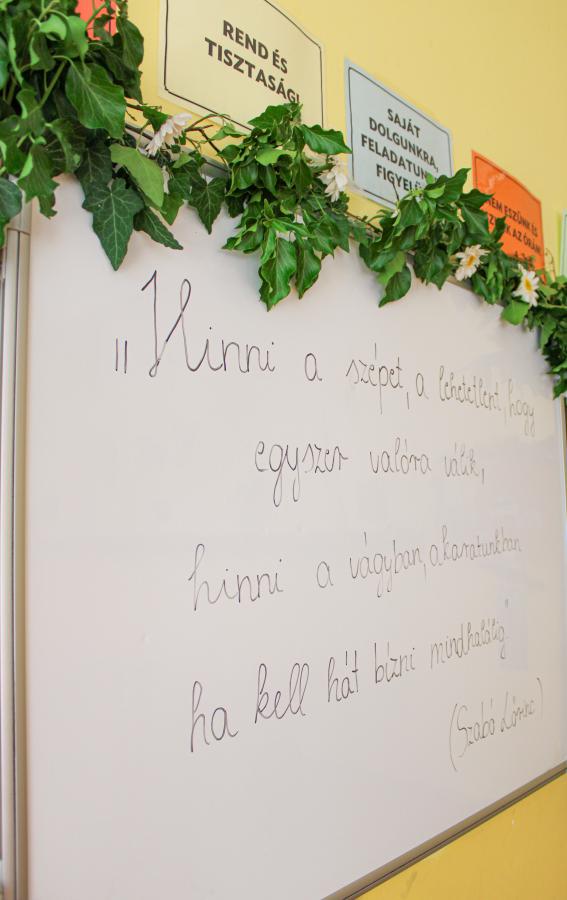 REND ÉS
TISZTASÁG!
SAJÁT
DOLGUNKRA,
FELADATUNKRA
FIGYELÜNK
NEM ESZÜNK ÉS
AZ ÓRÁN
„Hinni a szépet, a lehetetlent, hogy
egyszer valóra válik,
hinni a vágyban, akaratunkban
ha kell hát bízni mindhalálig"
(Szabó Lőrinc)